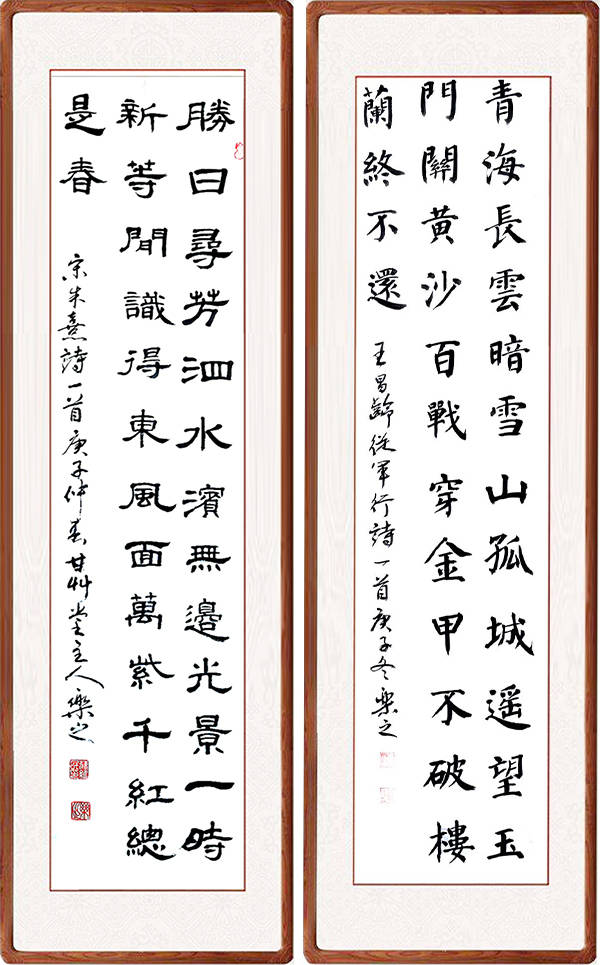 青海長雲暗雪山孤城遥望玉
門關黄沙百戰穿金甲不破樓
蘭終不還
王昌齡從軍行詩一首庚子冬樂之
勝日尋芳泗水濱無邊光景一時
新等閒識得東風面萬紫千紅總
是春
宋朱熹詩一首庚子仲春甘艸堂主人樂之